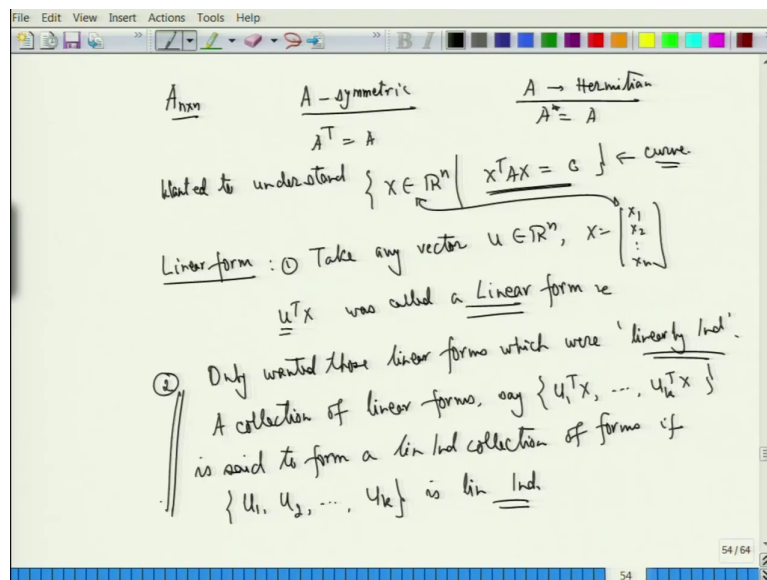 File Edit View Insert Actions Tools Help
A_{n×n} A - symmetric A → Hermitian
A^T = A A* = A
Wanted to understand { x ∈ ℝ^n | x^T A x = c } ← curve
Linear form : ① Take any vector u ∈ ℝ^n, x = [x_1 x_2 ⋮ x_n]
u^T x was called a Linear form
② Only wanted those linear forms which were 'linearly Ind'.
A collection of linear forms, say { u_1^T x, ..., u_k^T x }
is said to form a lin Ind collection of forms if
{ u_1, u_2, ..., u_k } is lin Ind.
54 / 64
54